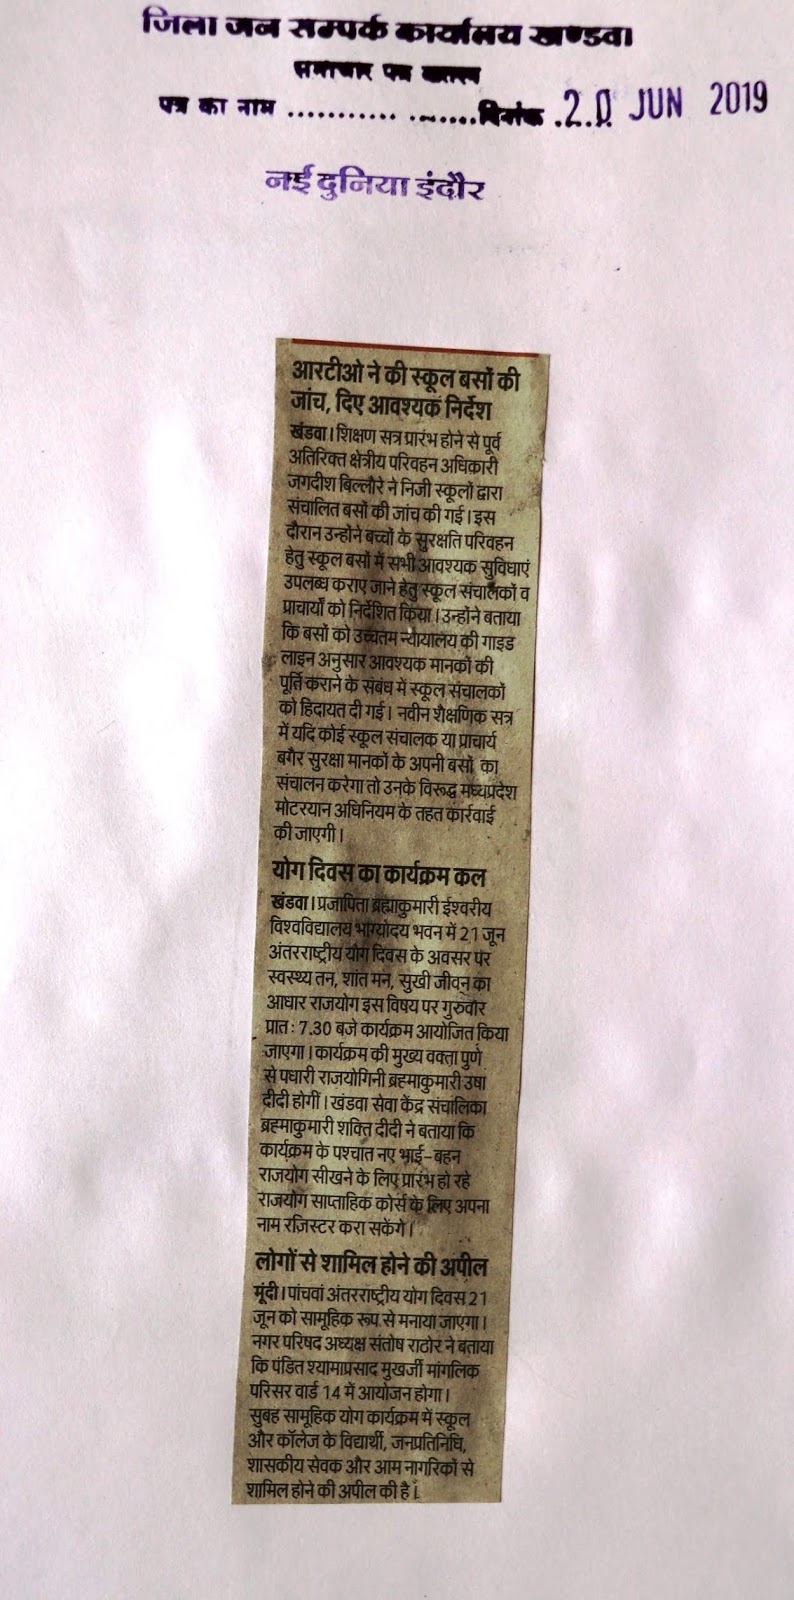 जिला जन सम्पर्क कार्यालय खण्डवा
समाचार पत्र कतरन
पत्र का नाम ........... ........दिनांक .20 JUN 2019
नई दुनिया इंदौर
आरटीओ ने की स्कूल बसों की
जांच, दिए आवश्यक निर्देश
खंडवा। शिक्षण सत्र प्रारंभ होने से पूर्व
अतिरिक्त क्षेत्रीय परिवहन अधिकारी
जगदीश बिल्लौरे ने निजी स्कूलों द्वारा
संचालित बसों की जांच की गई। इस
दौरान उन्होंने बच्चों के सुरक्षति परिवहन
हेतु स्कूल बसों में सभी आवश्यक सुविधाएं
उपलब्ध कराए जाने हेतु स्कूल संचालकों व
प्राचार्यों को निर्देशित किया। उन्होंने बताया
कि बसों को उच्चतम न्यायालय की गाइड
लाइन अनुसार आवश्यक मानकों की
पूर्ति कराने के संबंध में स्कूल संचालकों
को हिदायत दी गई। नवीन शैक्षणिक सत्र
में यदि कोई स्कूल संचालक या प्राचार्य
बगैर सुरक्षा मानकों के अपनी बसों का
संचालन करेगा तो उनके विरूद्ध मध्यप्रदेश
मोटरयान अधिनियम के तहत कार्रवाई
की जाएगी।
योग दिवस का कार्यक्रम कल
खंडवा। प्रजापिता ब्रह्माकुमारी ईश्वरीय
विश्वविद्यालय भाग्योदय भवन में 21 जून
अंतरराष्ट्रीय योग दिवस के अवसर पर
स्वस्थ्य तन, शांत मन, सुखी जीवन का
आधार राजयोग इस विषय पर गुरुवार
प्रात: 7.30 बजे कार्यक्रम आयोजित किया
जाएगा। कार्यक्रम की मुख्य वक्ता पुणे
से पधारी राजयोगिनी ब्रह्माकुमारी उषा
दीदी होगीं। खंडवा सेवा केंद्र संचालिका
ब्रह्माकुमारी शक्ति दीदी ने बताया कि
कार्यक्रम के पश्चात नए भाई-बहन
राजयोग सीखने के लिए प्रारंभ हो रहे
राजयोग साप्ताहिक कोर्स के लिए अपना
नाम रजिस्टर करा सकेंगे।
लोगों से शामिल होने की अपील
मूंदी। पांचवां अंतरराष्ट्रीय योग दिवस 21
जून को सामूहिक रूप से मनाया जाएगा।
नगर परिषद अध्यक्ष संतोष राठोर ने बताया
कि पंडित श्यामाप्रसाद मुखर्जी मांगलिक
परिसर वार्ड 14 में आयोजन होगा।
सुबह सामूहिक योग कार्यक्रम में स्कूल
और कॉलेज के विद्यार्थी, जनप्रतिनिधि,
शासकीय सेवक और आम नागरिकों से
शामिल होने की अपील की है।